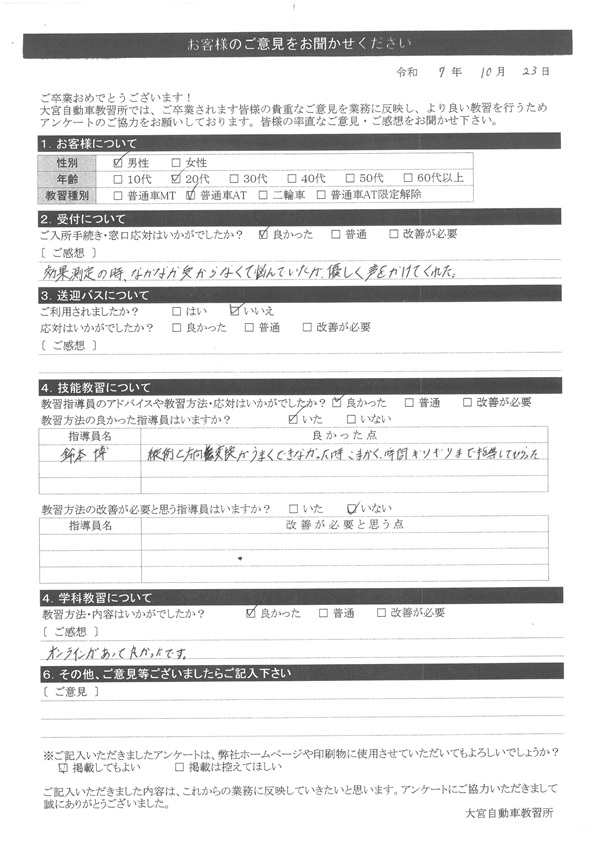 お客様のご意見をお聞かせください
令和 7 年 10 月 23 日
ご卒業おめでとうございます！
大宮自動車教習所では、ご卒業されます皆様の貴重なご意見を業務に反映し、より良い教習を行うため
アンケートのご協力をお願いしております。皆様の率直なご意見・ご感想をお聞かせ下さい。
1. お客様について
性別 ☑男性 □女性
年齢 □10代 ☑20代 □30代 □40代 □50代 □60代以上
教習種別 □普通車MT ☑普通車AT □二輪車 □普通車AT限定解除
2. 受付について
ご入所手続き・窓口応対はいかがでしたか？ ☑良かった □普通 □改善が必要
［ ご感想 ］
効果測定の時、なかなか受からなくて悩んでいたが、優しく声をかけてくれた。
3. 送迎バスについて
ご利用されましたか？ □はい ☑いいえ
応対はいかがでしたか？ □良かった □普通 □改善が必要
［ ご感想 ］
4. 技能教習について
教習指導員のアドバイスや教習方法・応対はいかがでしたか？ ☑良かった □普通 □改善が必要
教習方法の良かった指導員はいますか？ ☑いた □いない
指導員名 良かった点
鈴木 博 縦列と方向変換がうまくできなかった時こまかく、時間ギリギリまで指導してもらった
教習方法の改善が必要と思う指導員はいますか？ □いた ☑いない
指導員名 改善が必要と思う点
4. 学科教習について
教習方法・内容はいかがでしたか？ ☑良かった □普通 □改善が必要
［ ご感想 ］
オンラインがあって良かったです。
6. その他、ご意見等ございましたらご記入下さい
［ ご意見 ］
※ご記入いただきましたアンケートは、弊社ホームページや印刷物に使用させていただいてもよろしいでしょうか？
☑掲載してもよい □掲載は控えてほしい
ご記入いただきました内容は、これからの業務に反映していきたいと思います。アンケートにご協力いただきまして
誠にありがとうございました。
大宮自動車教習所